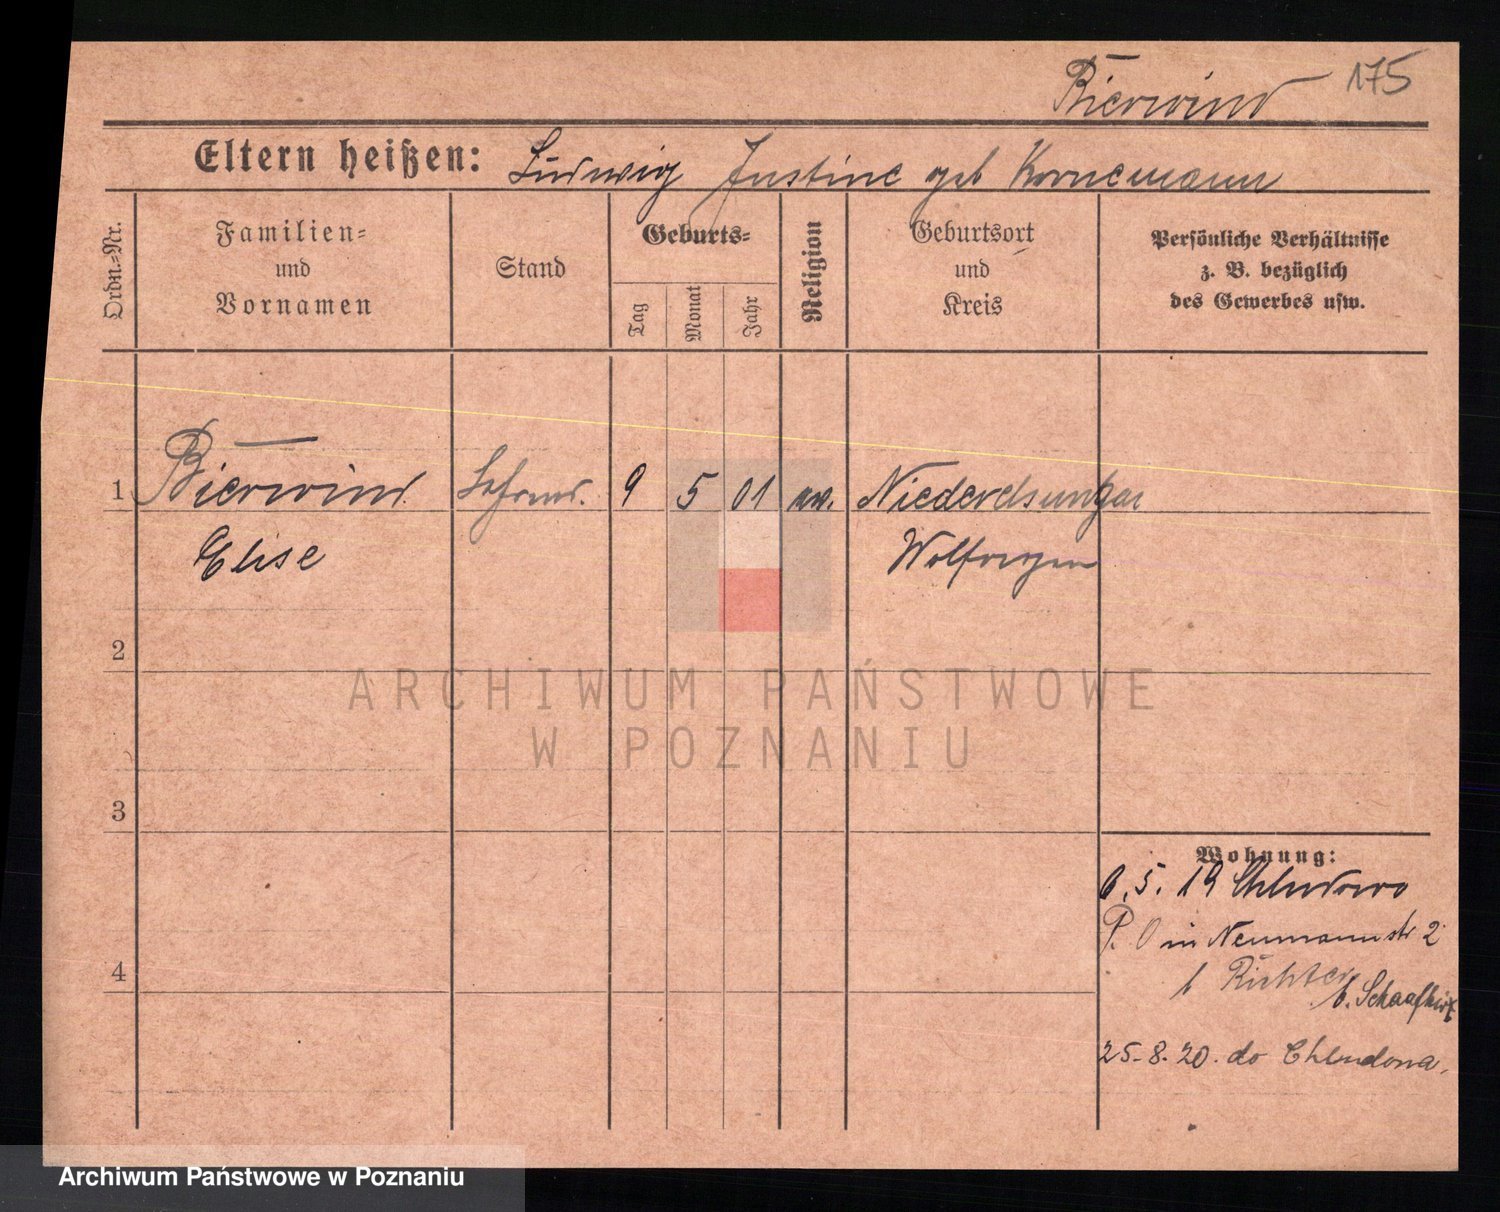 Bierwind 175
Eltern heißen: Ludwig Justine geb Kornemann
Ordn.-Nr.
Familien-
und
Vornamen
Stand
Geburts-
Tag
Monat
Jahr
Religion
Geburtsort
und
Kreis
Persönliche Verhältnisse
z. B. bezüglich
des Gewerbes usw.
1 Bierwind 9 5 01 ew. Niederelsungen
Elise Wolfhagen
2
ARCHIWUM PAŃSTWOWE
W POZNANIU
3
Wohnung:
6.5.19 Chludowo
P. O in Neumannstr 2
b Richter
b.
4
25-8-20. do Chludowa.
Archiwum Państwowe w Poznaniu